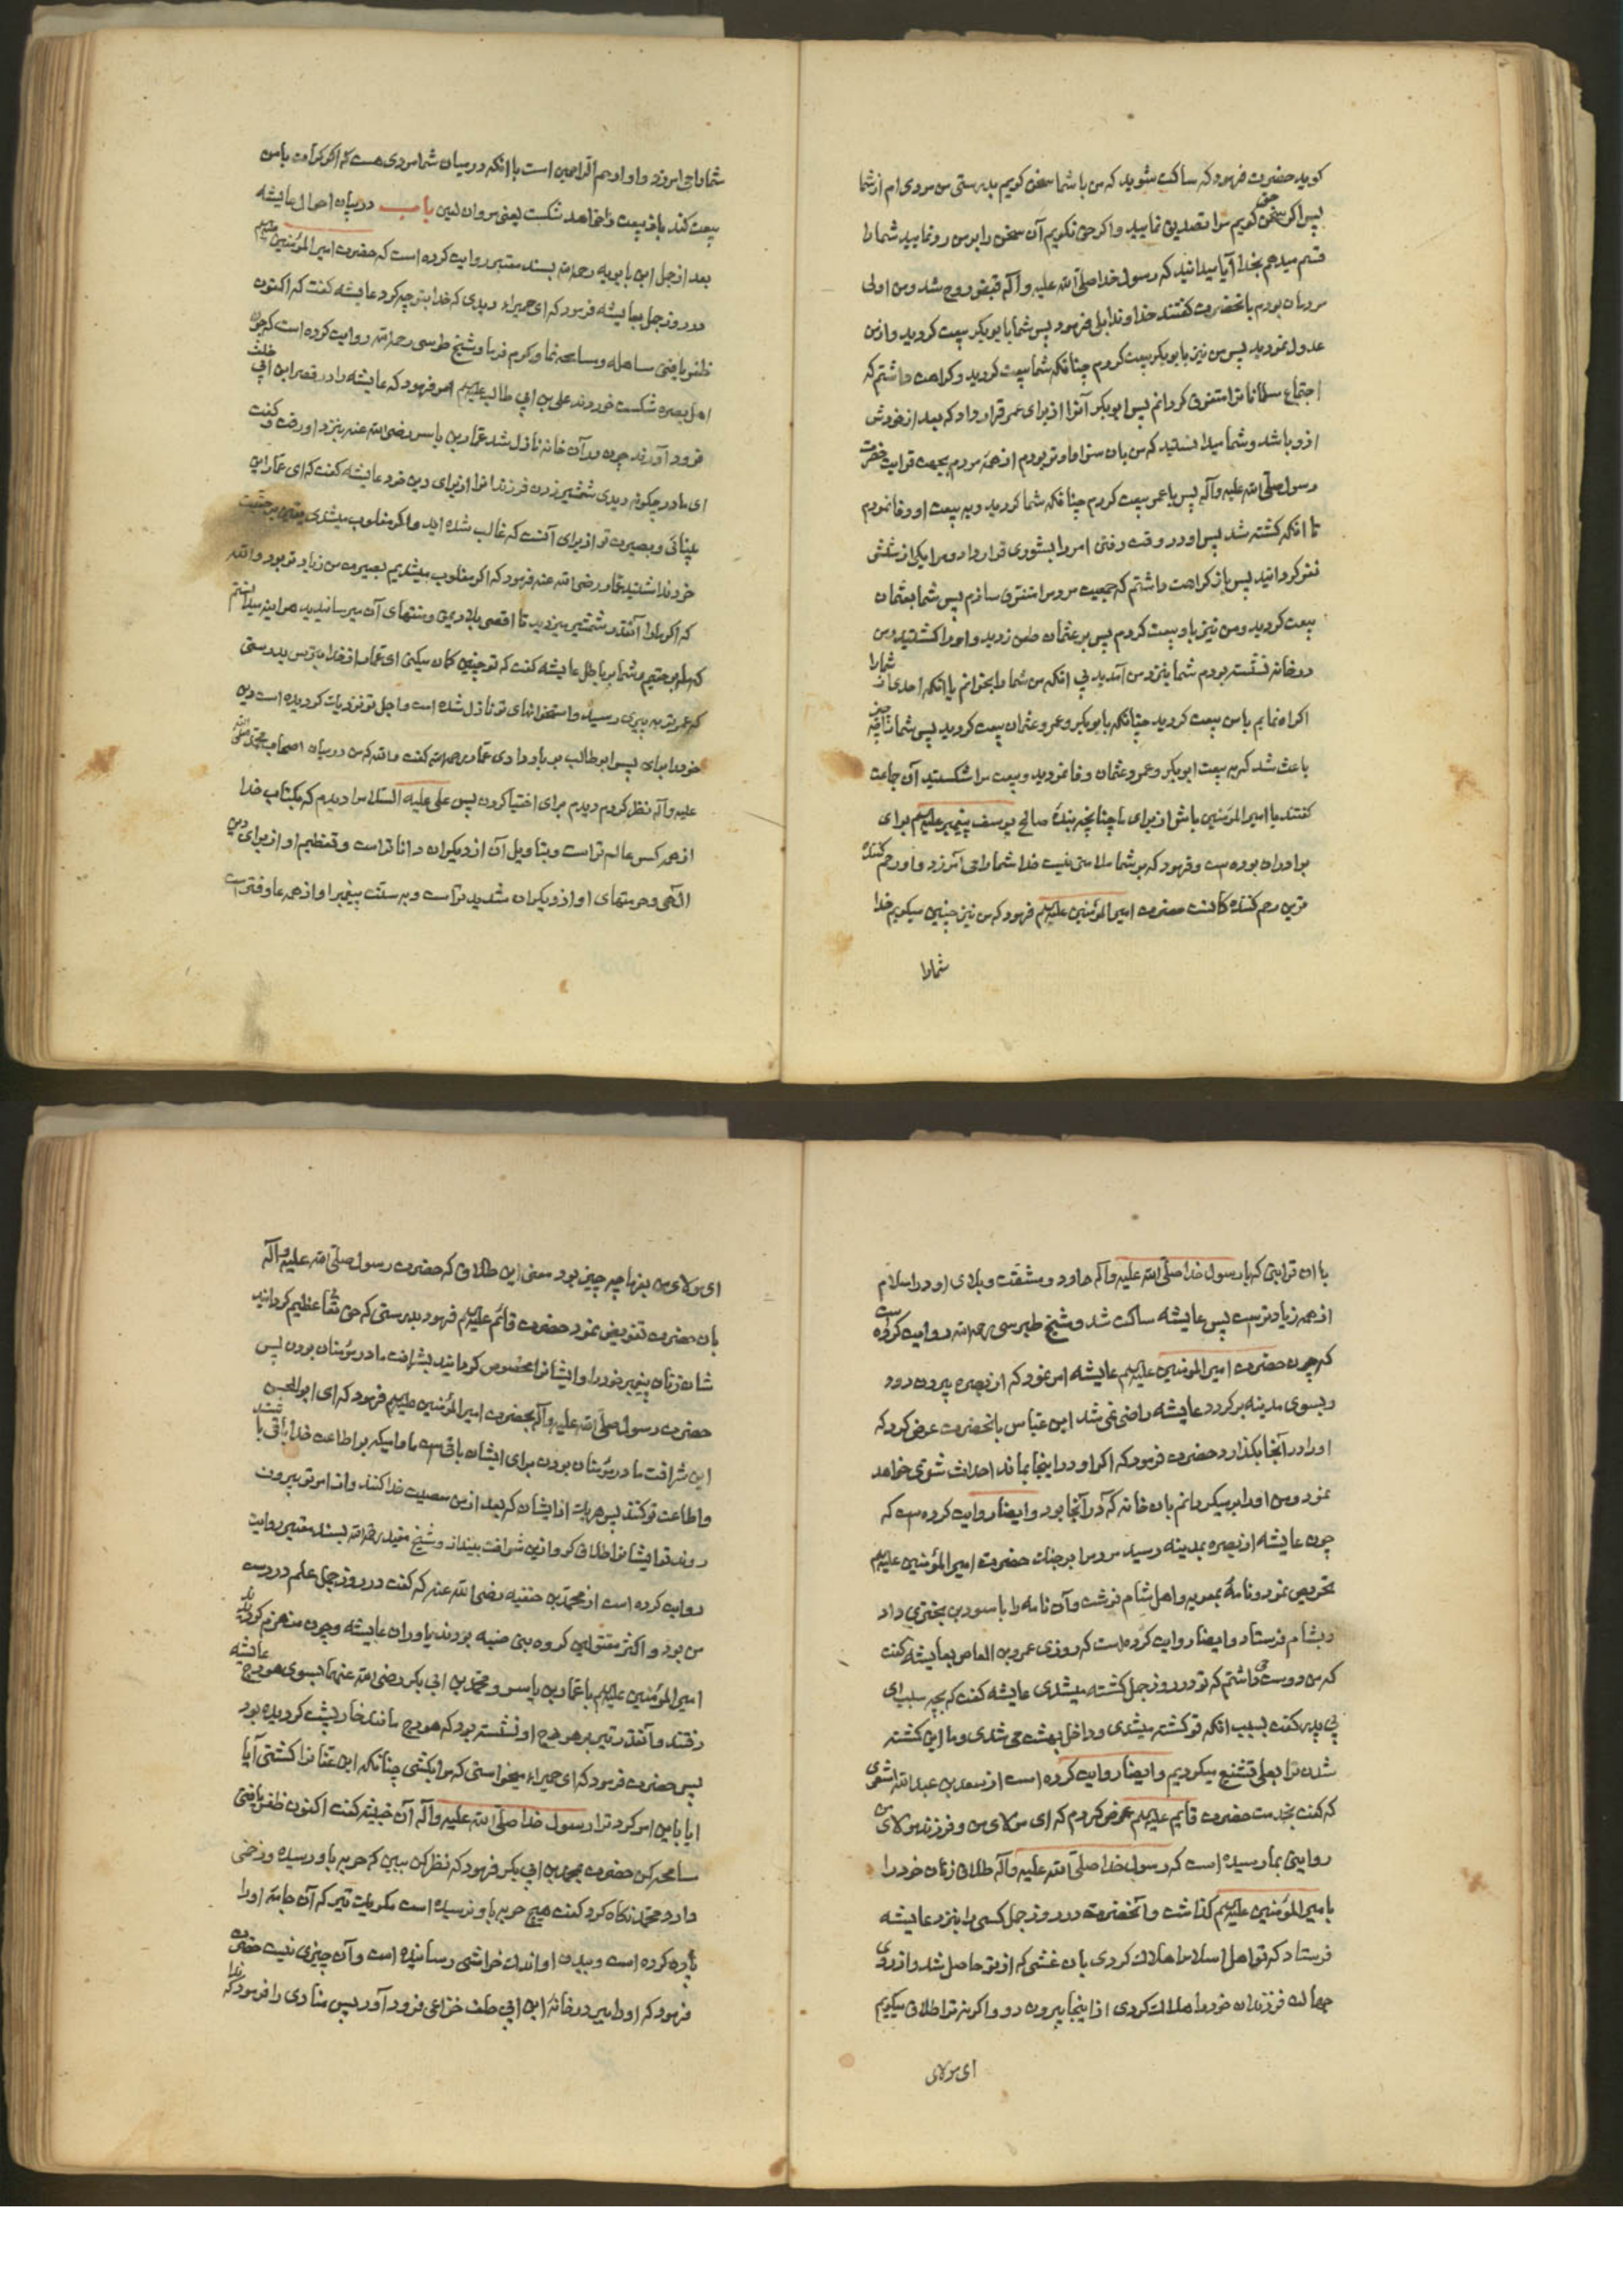 کوید حضرت فرمود که ساکت شوید که من با شما سخن کویم بدرستی من مردی ام از شما
پس اکر سخن حق کویم مرا تصدیق نمایید و اکر حق نکویم آن سخن را بر من رد نمایید شما را
قسم میدهم بخدا آیا میدانید که رسول خدا صلی الله علیه وآله قبض روح شد و من اولی
مردمان بودم بانحضرت کفتند خداوندا بلی فرمود پس شما با ابوبکر بیعت کردید و از من
عدول نمودید پس من نیز با ابوبکر بیعت کردم چنانکه شما بیعت کردید و کراهت داشتم که
اجتماع مسلمانانرا متفرق کردانم پس ابوبکر آنرا از برای عمر قرار داد که بعد از خودش
از او باشد و شما میدانستید که من بان سزاوارتر بودم از همه مردم بجهت قرابت حضرت
رسول صلی الله علیه وآله پس با عمر بیعت کردم چنانکه شما کردید و به بیعت او وفا نمودم
تا انکه کشته شد پس او در وقت رفتن امر را بشوری قرار داد و مرا یکی از شش
نفر کردانید پس باز کراهت داشتم که جمعیت مردم را متفرق سازم پس شما بعثمان
بیعت کردید و من نیز باو بیعت کردم پس بر عثمان طعن زدید و او را کشتید و من
در خانه نشسته بودم شما بنزد من آمدید بی انکه من شما را بخوانم یا انکه احدی از شما را
اکراه نمایم با من بیعت کردید چنانکه با بوبکر و عمر و عثمان بیعت کردید پس شما را چه چیز
باعث شد که به بیعت ابوبکر و عمر و عثمان وفا نمودید و بیعت مرا شکستید آن جماعت
کفتند یا امیر المؤمنین باش از برای ما چنانچه بندهٔ صالح یوسف پیغمبر علیه السلم برای
برادران بوده است و فرمود که بر شما ملامتی نیست خدا شما را می آمرزد و او رحم کننده
ترین رحم کننده کانست حضرت امیر المؤمنین علیه السلم فرمود که من نیز چنین میکویم خدا
شما را
شما را می امرزد و او ارحم الراحمین است با انکه در میان شما مردی هست که اکر با من
بیعت کند باز بیعت را خواهد شکست یعنی مروان لعین باب در بیان احوال عایشه
بعد از جمل ابن بابویه رحمه الله بسند معتبر روایت کرده است که حضرت امیر المؤمنین علیه السلم
در روز جمل بعایشه فرمود که ای حمیراء دیدی که خدا بتو چه کرد عایشه کفت که اکنون
ظفر یافتی مساهله و مسامحه نما و کرم فرما و شیخ طوسی رحمه الله روایت کرده است که چون
اهل بصره شکست خوردند علی بن ابی طالب علیه السلم امر فرمود که عایشه را در قصر ابن ابی خلف
فرود آورند چون در آن خانه نازل شد عمار بن یاسر رضی الله عنه بنزد او رفت و کفت
ای مادر چکونه دیدی شمشیر زدن فرزندانرا از برای دین خود عایشه کفت که ای عمار این
بینائی و بصیرت تو از برای آنست که غالب شده اید و اکر مغلوب میشدی
خود نداشتید عمار رضی الله عنه فرمود که اکر مغلوب میشدیم بصیرت من زیادتر بود والله
که اکر ما را آنقدر شمشیر میزدید تا اقصی بلاد یمن و منتهای آن میرسانیدید هر اینه میدانستم
که ما بر حقیم و شما بر باطل عایشه کفت که تو چنین کمان میکنی ای عمار از خدا بترس بدرستی
که عمر تو به پیری رسید و استخوانهای تو نازل شده است و اجل تو نزدیک کردیده است دین
خود را برای پسر ابو طالب بر باد دادی عمار رحمه الله کفت والله که من در میان اصحاب محمد صلی الله
علیه وآله نظر کردم دیدم برای اختیار کردن پس علی علیه السلام را دیدم که بکتاب خدا
از همه کس عالم تراست و بتاویل آن از دیکران داناتر است و تعظیم او از برای دین
الهی و حرمتهای او از دیکران شدیدتر است و به سنت پیغمبر او از همه عارفتر است
با ان قرابتی که با رسول خدا صلی الله علیه وآله دارد و مشقت و بلای او در اسلام
از همه زیادتر است پس عایشه ساکت شد و شیخ طبرسی رحمه الله روایت کرده است
که چون حضرت امیر المؤمنین علیه السلم عایشه امر نمود که از بصره بیرون رود
و بسوی مدینه بر کردد عایشه راضی نمی شد ابن عباس بانحضرت عرض کرد که
او را در آنجا بکذار و حضرت فرمود که اکر او در اینجا بماند احداث شوی خواهد
نمود و من او را بر میکردانم بان خانه که در آنجا بود و ایضا روایت کرده است که
چون عایشه از بصره بمدینه رسید مردم را بر جنک حضرت امیر المؤمنین علیه السلم
تحریص نمود و نامهٔ بمعویه و اهل شام نوشت و آن نامه را با اسود بن بختری داد
و بشام فرستاد و ایضا روایت کرده است که روزی عمرو بن العاص بعایشه کفت
که من دوست می داشتم که تو در روز جمل کشته میشدی عایشه کفت که بچه سبب ای
بی پدر کفت بسبب انکه تو کشته میشدی و داخل بهشت می شدی و ما این کشته
شدن ترا بعلی تشنیع میکردیم و ایضا روایت کرده است از سعد بن عبد الله اشعری
که کفت بخدمت حضرت قایم علیه السلم عرض کردم که ای مولای من و فرزند مولای من
روایتی بما رسیده است که رسول خدا صلی الله علیه وآله طلاق زنان خود را
بامیر المؤمنین علیه السلم کذاشت و آنحضرت در روز جمل کسی را بنزد عایشه
فرستاد که تو اهل اسلام را هلاک کردی بان غشی که از تو حاصل شد و از روی
جهالت فرزندان خود را هلاک کردی از اینجا بیرون رو و اکر نه ترا طلاق میکویم
ای مولای
ای مولای من بفرما چه چیز بود معنی این طلاق که حضرت رسول صلی الله علیه وآله
بان حضرت تفویض نمود حضرت قائم علیه السلم فرمود بدرستی که حق تعالی عظیم کردانید
شان زنان پیغمبر خود را و ایشانرا مخصوص کردانید بشرافت مادر مؤمنان بودن پس
حضرت رسول صلی الله علیه وآله بحضرت امیر المؤمنین علیه السلم فرمود که ای ابوالحسن
این شرافت مادر مؤمنان بودن برای ایشان باقی است مادامیکه بر اطاعت خدا باقی باشند
و اطاعت تو کنند پس هر یک از ایشان که بعد از من معصیت خدا کنند و از امر تو بیرون
روند تو ایشانرا طلاق کو و ازین شرافت بینداز و شیخ مفید رحمه الله بسند معتبر روایت
روایت کرده است از محمد بن حنفیه رضی الله عنه که کفت در روز جمل علم در دست
من بود و اکثر مقتولین کروه بنی ضبه بودند یاوران عایشه و چون منهزم کردیدند
امیر المؤمنین علیه السلم با عمار بن یاسر و محمد بن ابی بکر رضی الله عنهما بسوی هودج عایشه
رفتند و آنقدر تیر بر هودج او نشسته بود که هودج مانند خارپشت کردیده بود
پس حضرت فرمود که ای حمیراء میخواستی که مرا بکشی چنانکه ابن عفانرا کشتی آیا
ایا باین امر کرد ترا رسول خدا صلی الله علیه وآله آن خبیثه کفت اکنون ظفر یافتی
مسامحه کن حضرت بمحمد بن ابی بکر فرمود که نظر کن ببین که حربه باو رسیده و زخمی
دارد محمد نکاه کرد کفت هیچ حربه باو نرسیده است مکر یک تیر که آن جامه او را
پاره کرده است و ببدن او اندک خراشی رسانیده است و آن چیزی نیست حضرت
فرمود که او را ببر در خانهٔ ابن ابی خلف خزاعی فرود آور پس منادی را فرمود که ندا